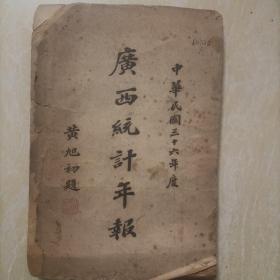 中華民國三十六年度
廣西統計年報
黃旭初題